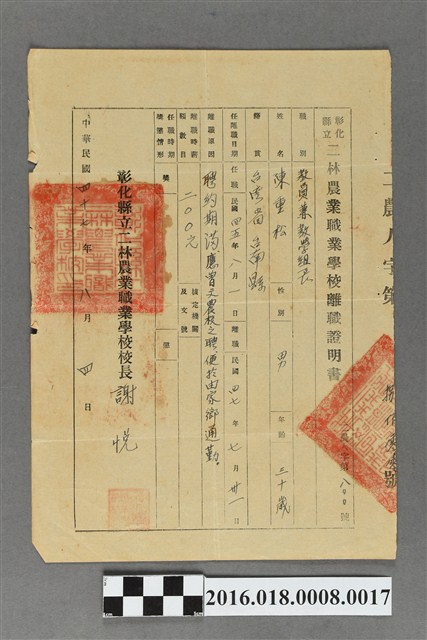 二農人字第
號
彰化縣立二林農業職業學校離職證明書
二農字第八〇〇號
職別 教員兼教學組長
姓名 陳重松 性別 男 年齡 三十歲
籍貫 台灣省台南縣
任離職日期 任職民國四五年八月一日 離職民國四七年七月卅一日
離職原因 聘約期滿應曾文農校之聘,便於由家鄉通勤。
離職時薪額數目 二〇〇元 核定機關及文號
任職時期獎懲情形 獎 懲
彰化縣立二林農業職業學校校長 謝悅
中華民國四十七年八月四日
2016.018.0008.0017